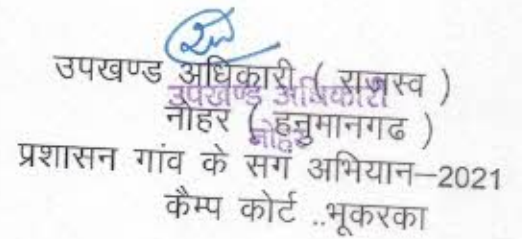 उपखण्ड अधिकारी ( राजस्व )
उपखण्ड अधिकारी
नौहर ( हनुमानगढ )
नोहर
प्रशासन गांव के सगं अभियान–2021
कैम्प कोर्ट ..भूकरका